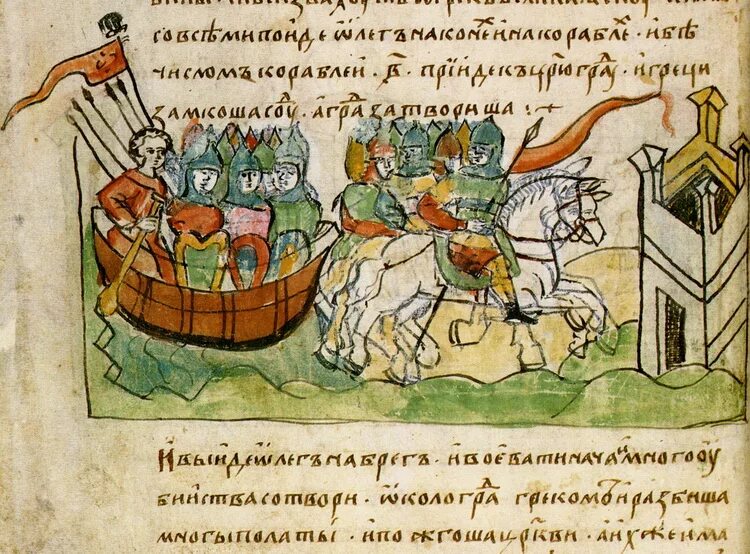 со всѣми поиде ѡлегъ на конеи и на кораблѣ . и бѣ
числомъ кораблеи . ҂в҃ . прїиде къ цр҃югра д . и греци
замкоша соу д . а гра д затвориша :·
и выиде ѡлегъ на брегъ . и воевати нача и много оу
биїства сотвори . ѡколо гра д греком . и разбиша
многы полаты . и пожгоша цр҃кви . а их же има